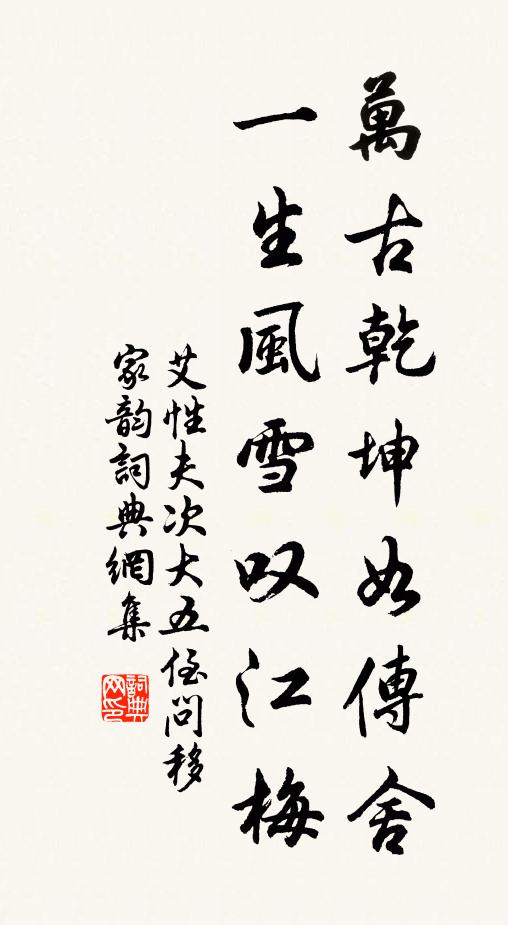 萬古乾坤如傳舍
一生風雪叹江梅
艾性夫次大五侄問移
家韵詞典網集
詞典
网印